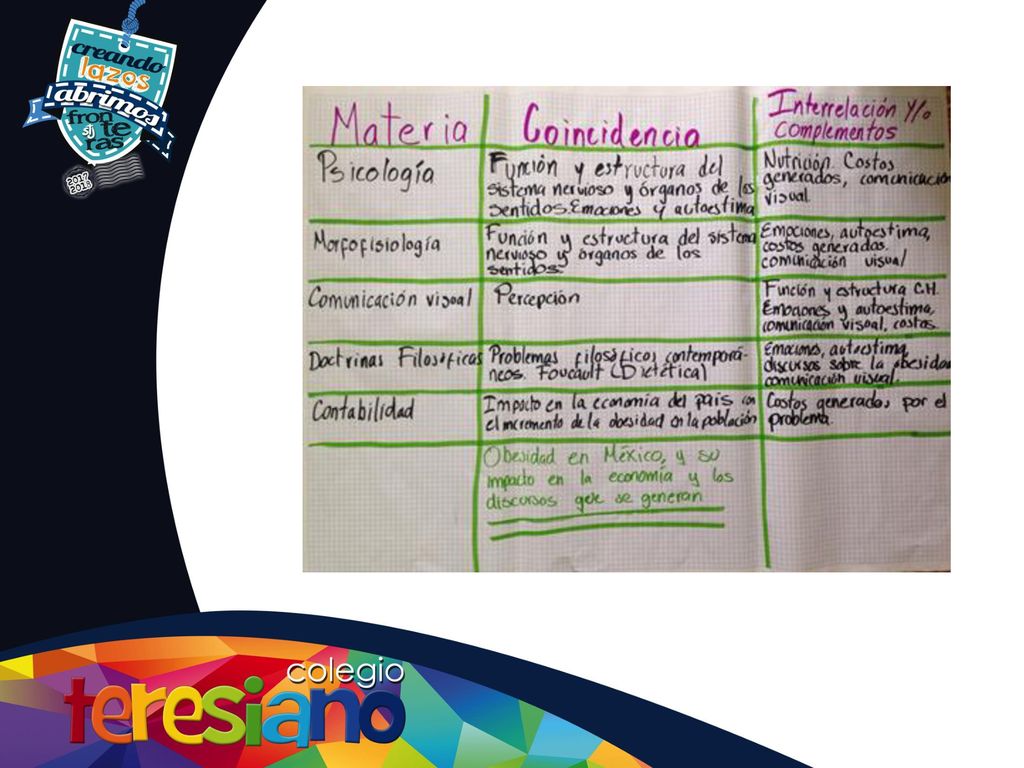 creando
lazos
abrimos
fron
stj
te
ras
2017
2018
Materia
Coincidencia
Interrelación y/o
complementos
Psicología
Función y estructura del
sistema nervioso y órganos de los
sentidos. Emociones y autoestima
Nutrición. Costos
generados, comunicación
visual
Morfofisiología
Función y estructura del sistema
nervioso y órganos de los
sentidos.
Emociones, autoestima,
costos generados.
comunicación visual
Comunicación visual
Percepción
Función y estructura C.H.
Emociones y autoestima,
comunicación visual, costos.
Doctrinas Filosóficas
Problemas filosóficos contemporá-
neos. Foucault (Dietética)
Emociones, autoestima,
discursos sobre la obesidad
comunicación visual.
Contabilidad
Impacto en la economía del país con
el incremento de la obesidad en la población
Costos generados por el
problema.
Obesidad en México, y su
impacto en la economía y los
discursos que se generan
colegio
teresiano